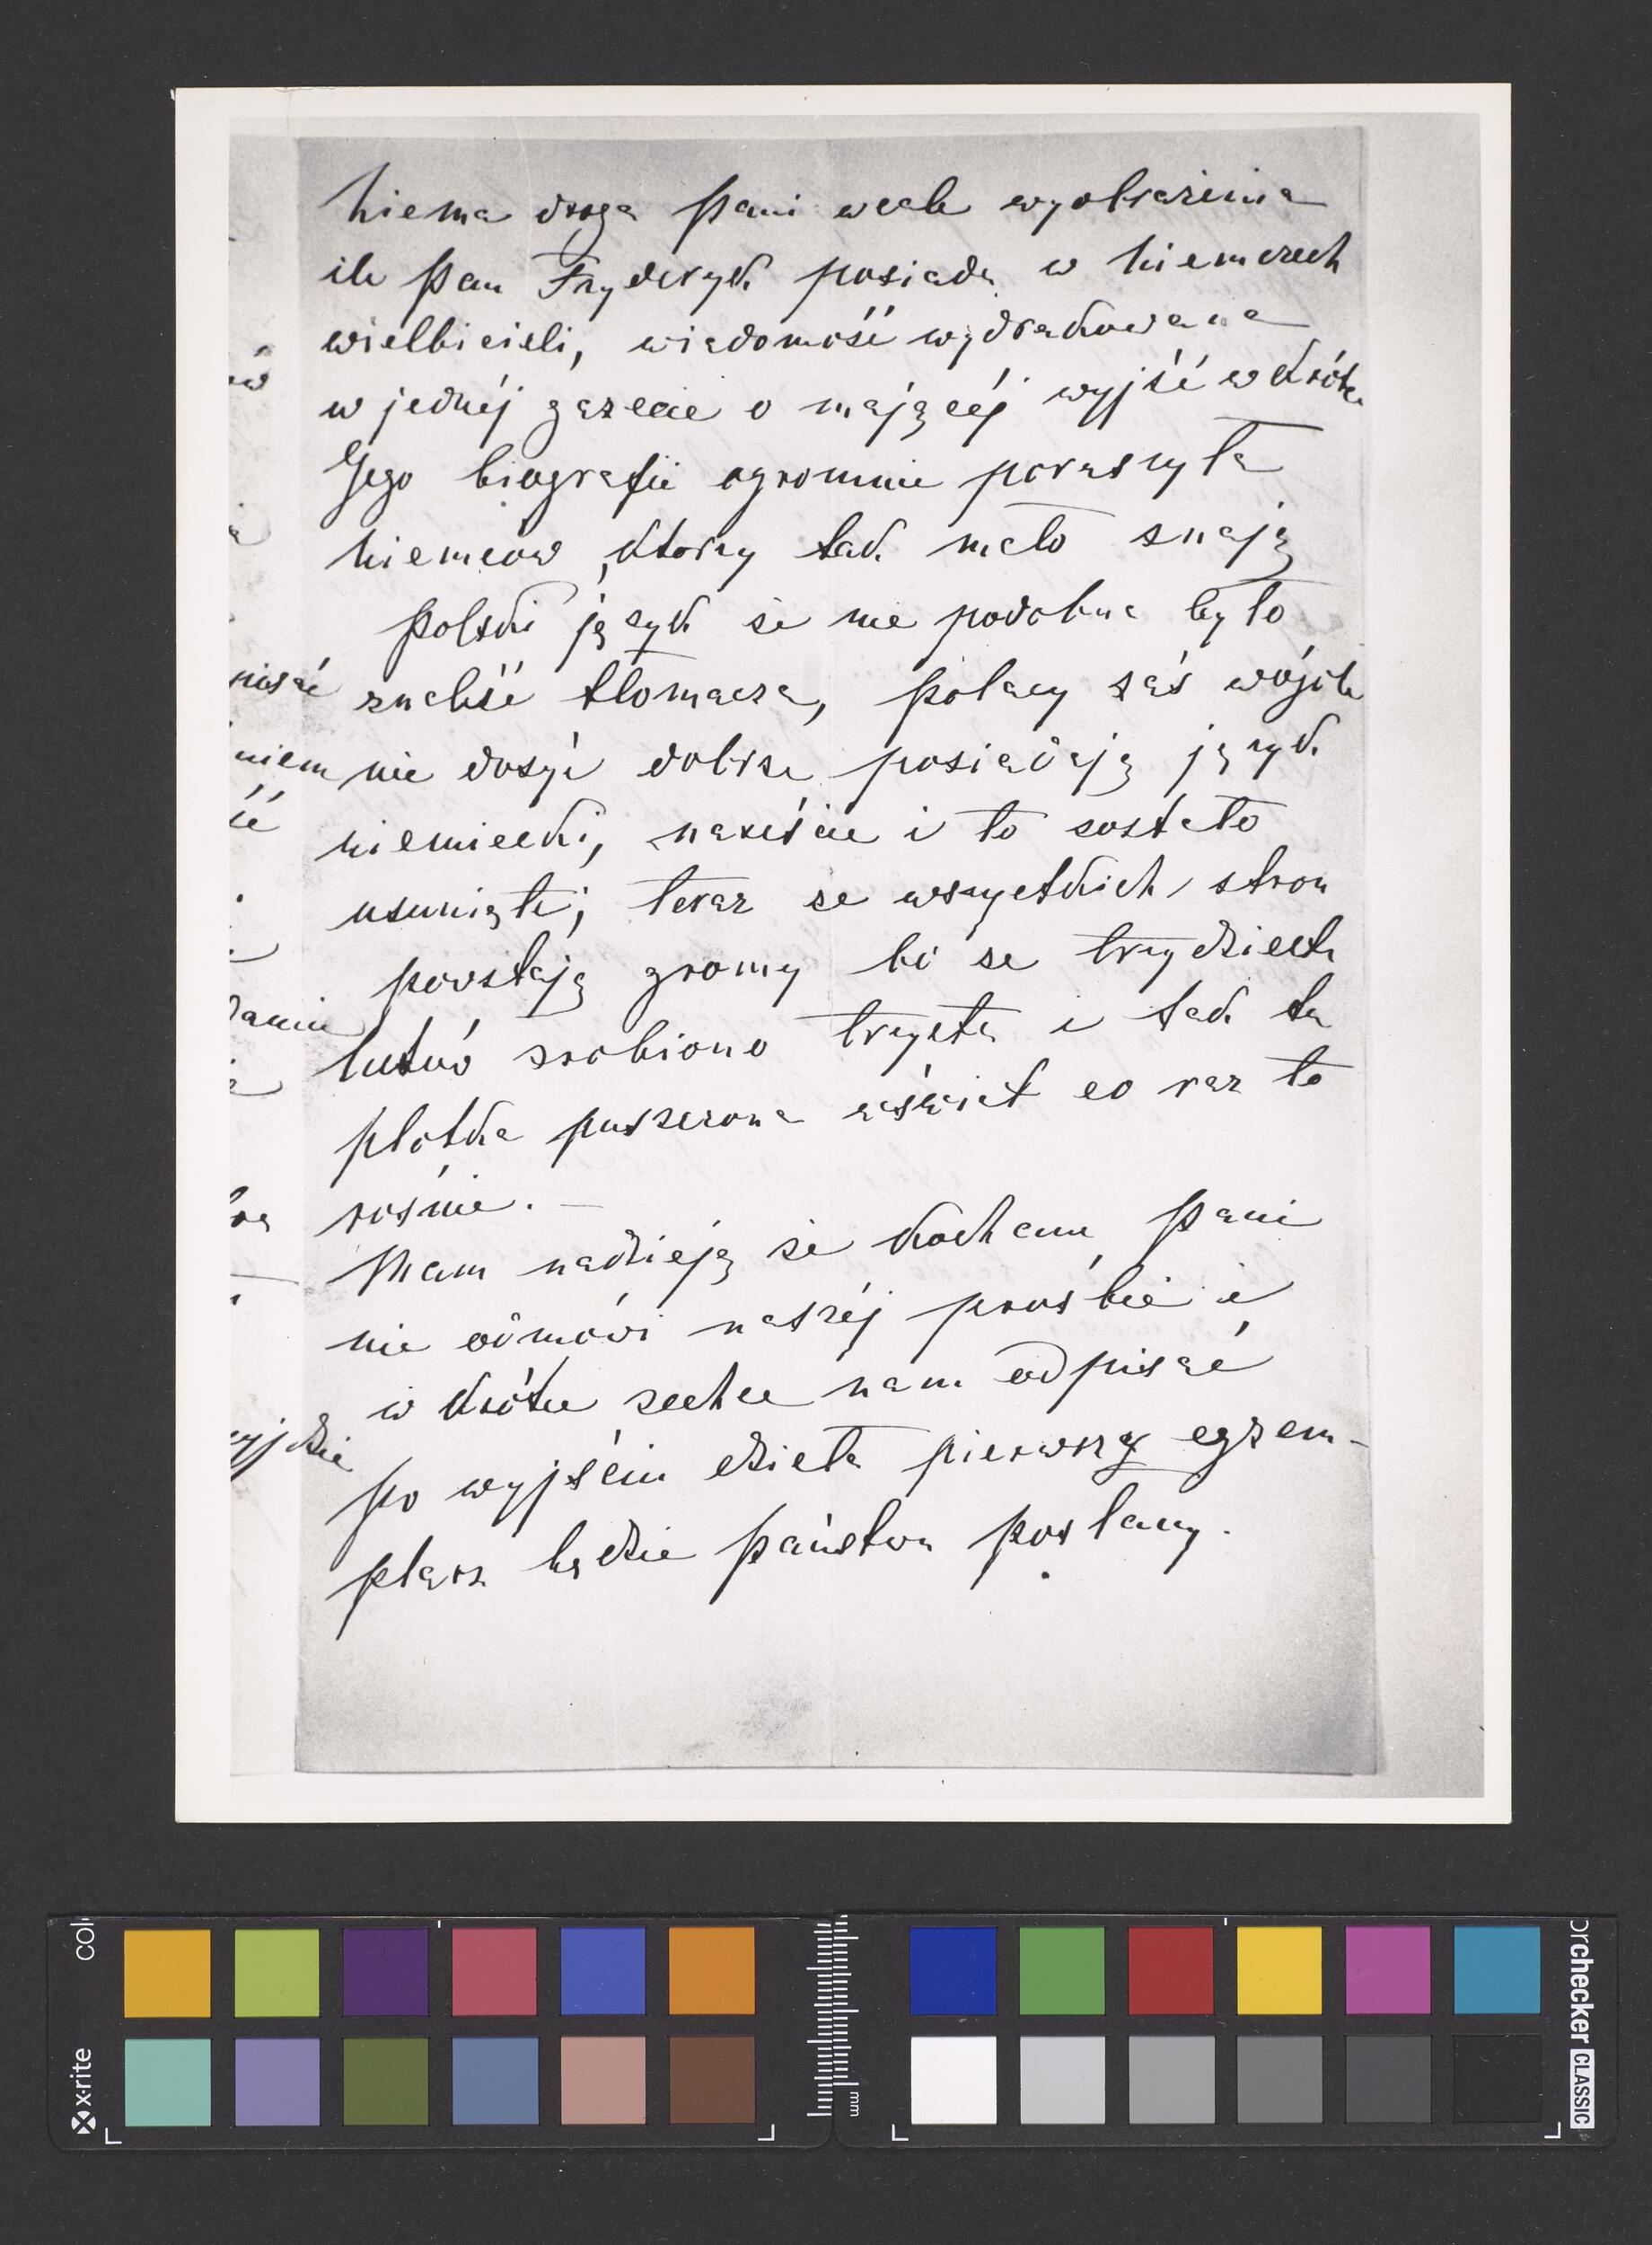 Niema droga Pani wcale wyobrażenia
ile Pan Fryderyk posiada w Niemczech
wielbicieli, wiadomość wydrukowana
w jednéj gazecie o mającéj wyjść wkrótce
Jego biografii ogromnie poruszyła
Niemców, którzy tak mało znają
Polski język że nie podobna było
pisać znaleść tłomacza, Polacy zaś wójch
niem nie dosyć dobrze posiadają język
niemiecki, nareście i to zostało
usunięte; teraz ze wszystkich stron
powstają gromy bo ze trzydziestu
lutów zrobiono trzysta i tak ta
plotka puszczona wświat co raz to
rośnie. —
Mam nadzieję że kochana Pani
nie odmówi naszéj prośbie i
w krótce zechce nam odpisać
yjdzie
Po wyjściu dzieła pierwszy egzem-
plarz będzie Państwu posłany.
x-rite
colorchecker CLASSIC
mm